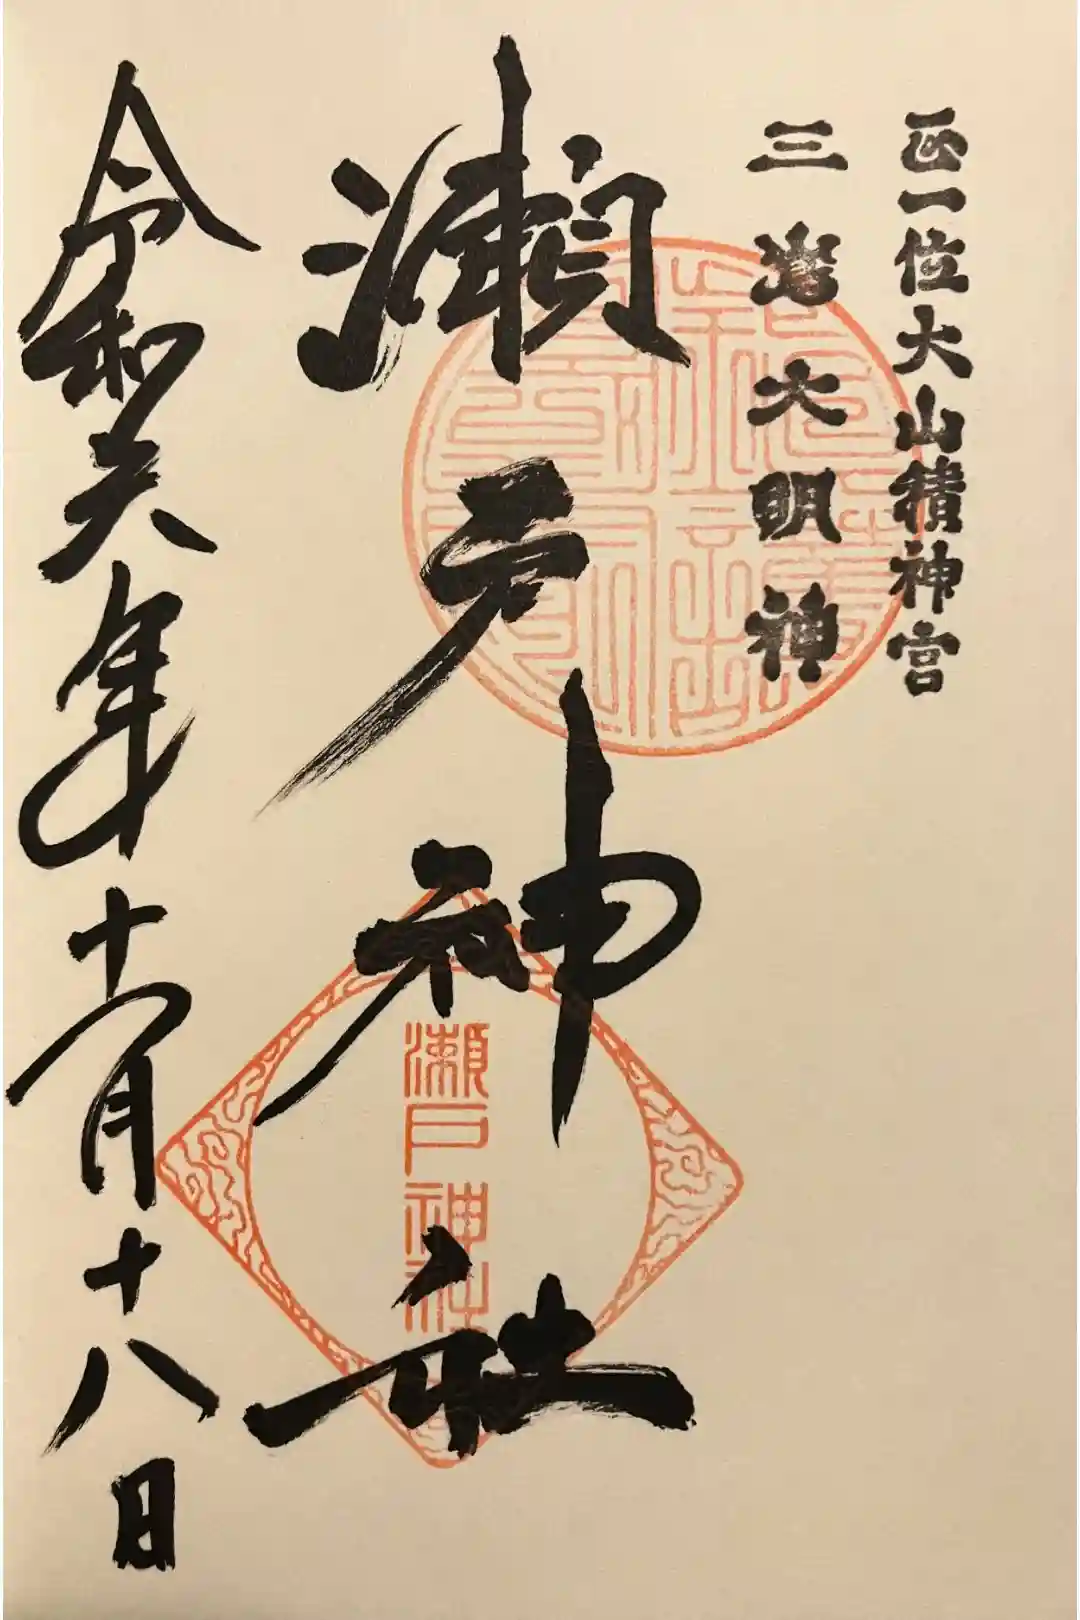 正一位大山積神宮
三嶌大明神
瀬戸神社
瀬戸神社
令和六年十一月十八日